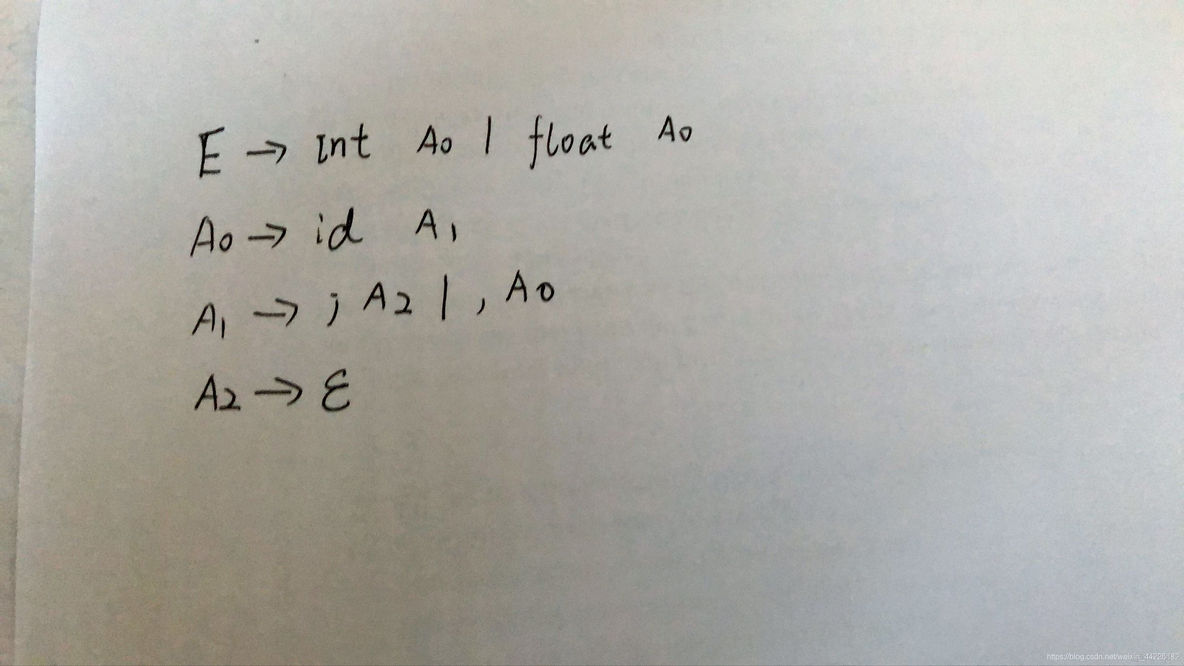 E → Int A0 | float A0
A0 → id A1
A1 → ; A2 | , A0
A2 → ε
https://blog.csdn.net/weixin_44226182